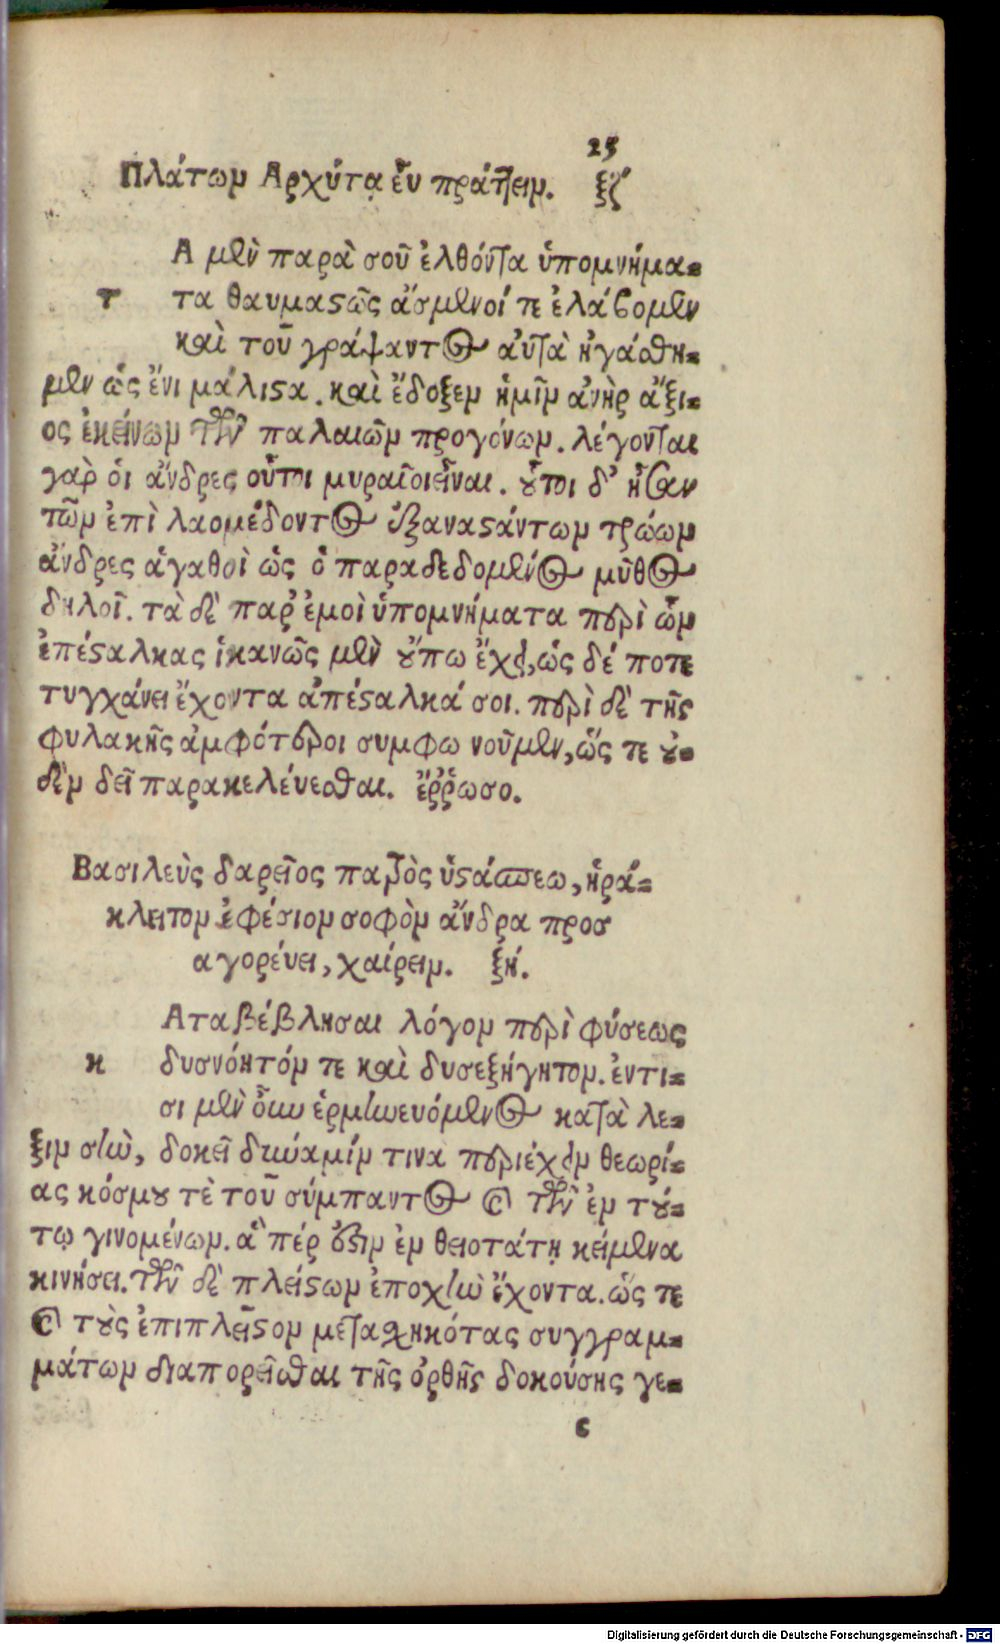 25
Πλάτων Ἀρχύτᾳ εὖ πράττειν. ξζ΄
Α μὲν παρὰ σοῦ ἐλθόντα ὑπομνήμα=
τ τα θαυμαστῶς ἄσμενοί τε ἐλάβομεν
καὶ τοῦ γράψαντος αὐτὰ ἠγάσθη=
μεν ὡς ἔνι μάλιστα. καὶ ἔδοξεν ἡμῖν ἀνὴρ ἄξι=
ος ἐκείνων τῶν παλαιῶν προγόνων. λέγονται
γὰρ ὁι ἄνδρες οὗτοι μυραῖοι εἶναι. οὗτοι δ' ἦσαν
τῶν ἐπὶ λαομέδοντος ἐξαναστάντων τρώων
ἄνδρες ἀγαθοὶ ὡς ὁ παραδεδομένος μῦθος
δηλοῖ. τὰ δὲ παρ' ἐμοὶ ὑπομνήματα περὶ ὧν
ἐπέσταλκας ἱκανῶς μὲν οὔπω ἔχει, ὡς δέ ποτε
τυγχάνει ἔχοντα ἀπέσταλκά σοι. περὶ δὲ τῆς
φυλακῆς ἀμφότεροι συμφω νοῦμεν, ὥς τε οὐ=
δὲν δεῖ παρακελέυεσθαι. ἔῤῥωσο.
Βασιλεὺς δαρεῖος πατρὸς ὑστάσπεω, ἡρά=
κλειτον ἐφέσιον σοφὸν ἄνδρα προσ
αγορέυει, χαίρειν. ξή.
Αταβέβλησαι λόγον περὶ φύσεως
κ δυσνόητόν τε καὶ δυσεξήγητον. ἐντι=
σι μὲν οὖν ἑρμηνευόμενος κατὰ λέ=
ξιν σὴν, δοκεῖ δύναμίν τινα περιέχειν θεωρί=
ας κόσμου τὲ τοῦ σύμπαντος καὶ τῶν ἐν τού=
τῳ γινομένων. ἅ πέρ ἐστιν ἐν θειοτάτῃ κείμενα
κινήσει. τῶν δὲ πλείστων ἐποχὴν ἔχοντα. ὥς τε
καὶ τοὺς ἐπιπλεῖστον μετασχηκότας συγγραμ=
μάτων διαπορεῖσθαι τῆς ὀρθῆς δοκούσης γε=
c
Digitalisierung gefördert durch die Deutsche Forschungsgemeinschaft - DFG